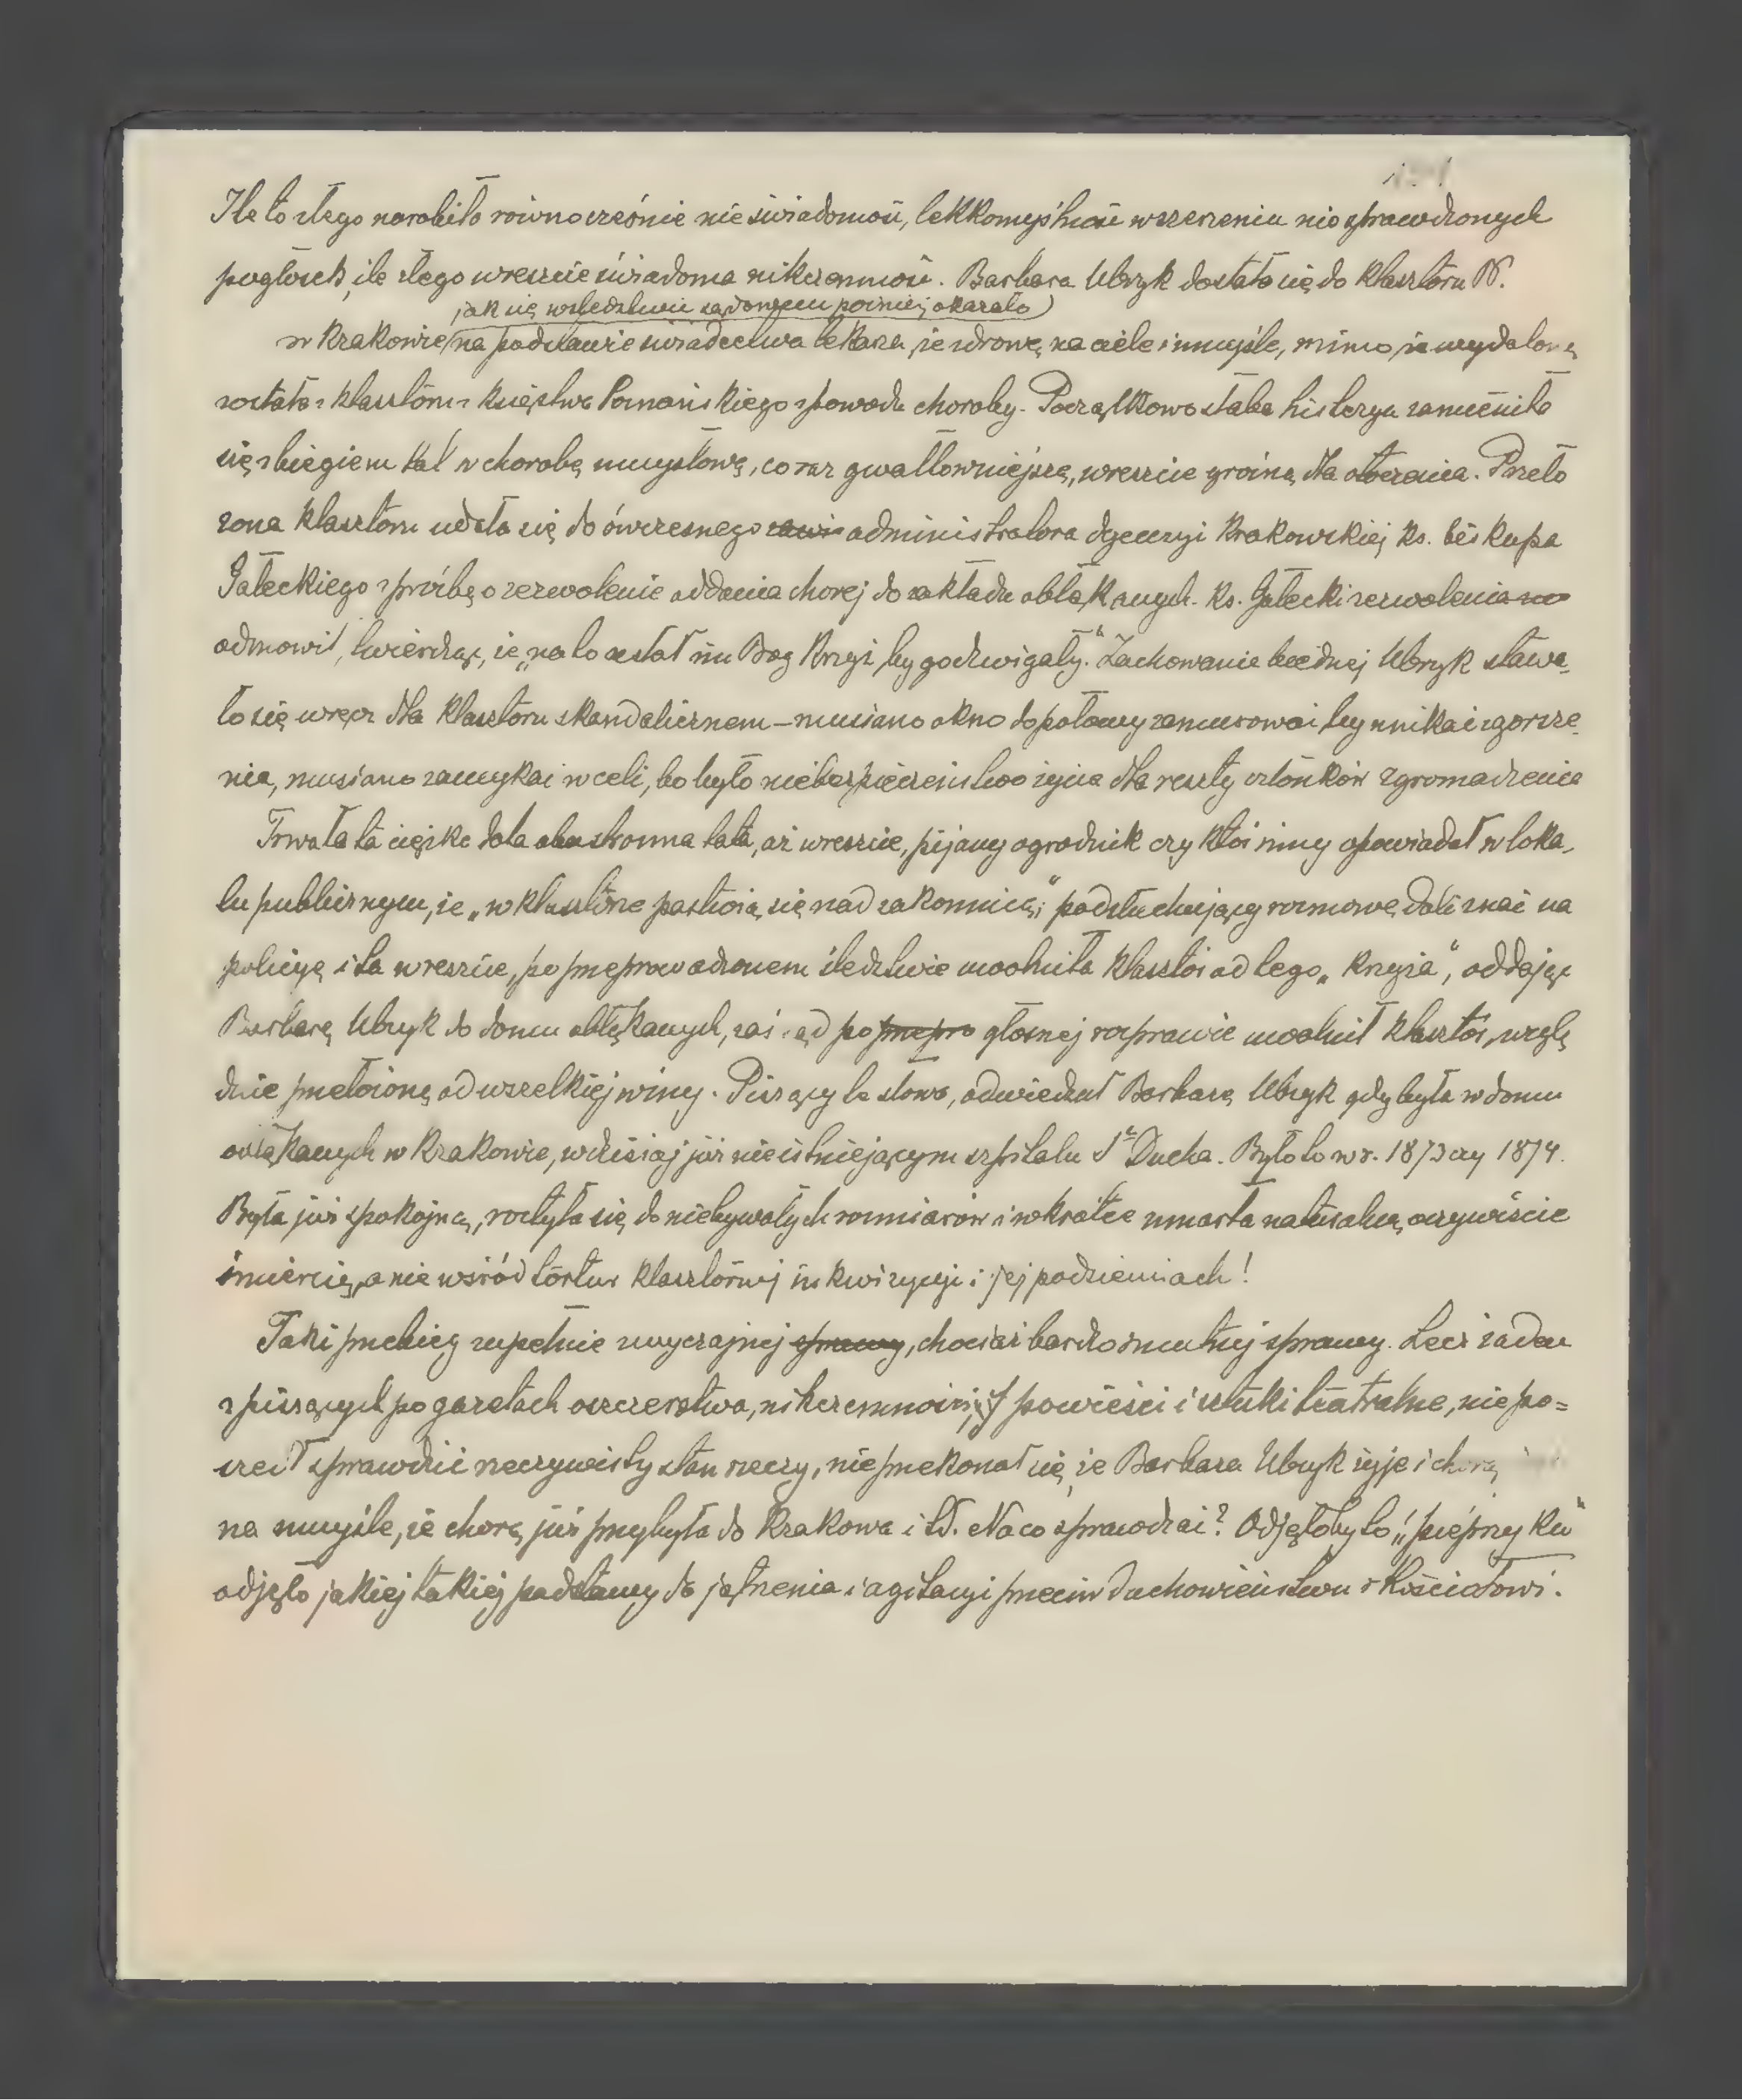 Ile to złego narobiło równocześnie nieświadomość, lekkomyślność w szerzeniu nie sprawdzonych
pogłosek, ile złego wreszcie świadoma nikczemność. Barbara Ubryk dostała się do klasztoru N.
jak się w śledztwie sądowem później okazało
w Krakowie na podstawie świadectwa lekarza, że zdrową na ciele i umyśle, mimo, że wydaloną
została z klasztoru z Księstwa Poznańskiego z powodu choroby. Początkowo słaba histerya zamieniła
się z biegiem lat w chorobę umysłową, coraz gwałtowniejszą, wreszcie groźną dla otoczenia. Przeło
żona klasztoru udała się do ówczesnego administratora dyecezyi Krakowskiej ks. biskupa
Gałeckiego z prośbą o zezwolenie oddania chorej do zakładu obłąkanych. Ks. Gałecki zezwolenia
odmówił, twierdząc, że „na to zesłał im Bóg Krzyż, by go dźwigały." Zachowanie biednej Ubryk stawa-
ło się wręcz dla klasztoru skandalicznem – musiano okno do połowy zamurować by unikać zgorsze-
nia, musiano zamykać w celi, bo było niebezpieczeństwo życia dla reszty członków zgromadzenia
Trwała ta ciężka dola obustronna lata, aż wreszcie, pijany ogrodnik czy ktoś inny opowiadał w loka-
lu publicznym, że „w klasztorze pastwią się nad zakonnicą;" podsłuchujący rozmowę dali znać na
policyę i ta wreszcie, po przeprowadzonem śledztwie uwolniła klasztor od tego „Krzyża", oddając
Barbarę Ubryk do domu obłąkanych, zaś sąd po przepro głośnej rozprawie uwolnił klasztor, wzglę
dnie przełożoną od wszelkiej winy. Piszący te słowa, odwiedzał Barbarę Ubryk gdy była w domu
obłąkanych w Krakowie, w dzisiaj już nieistniejącym szpitalu Sgo Ducha. Było to w r. 1873 czy 1874.
Była już spokojną, roztyła się do niebywałych rozmiarów i wkrótce umarła naturalną oczywiście
śmiercią, a nie wśród tortur klasztornej inkwizycyi i jej podziemiach!
Taki przebieg zupełnie zwyczajnej sprawy, chociaż bardzo smutnej sprawy. Lecz żaden
z piszących po gazetach oszczerstwa, nikczemności, powieści i sztuki teatralne, nie po=
szedł sprawdzić rzeczywisty stan rzeczy, nie przekonał się, że Barbara Ubryk żyje i chorą
na umyśle, że chorą już przybyła do Krakowa i td. Na co sprawdzać? Odjęłoby to „pieprzyku"
odjęło jakiej takiej podstawy do jątrzenia i agitacyi przeciw duchowieństwu i Kościołowi.